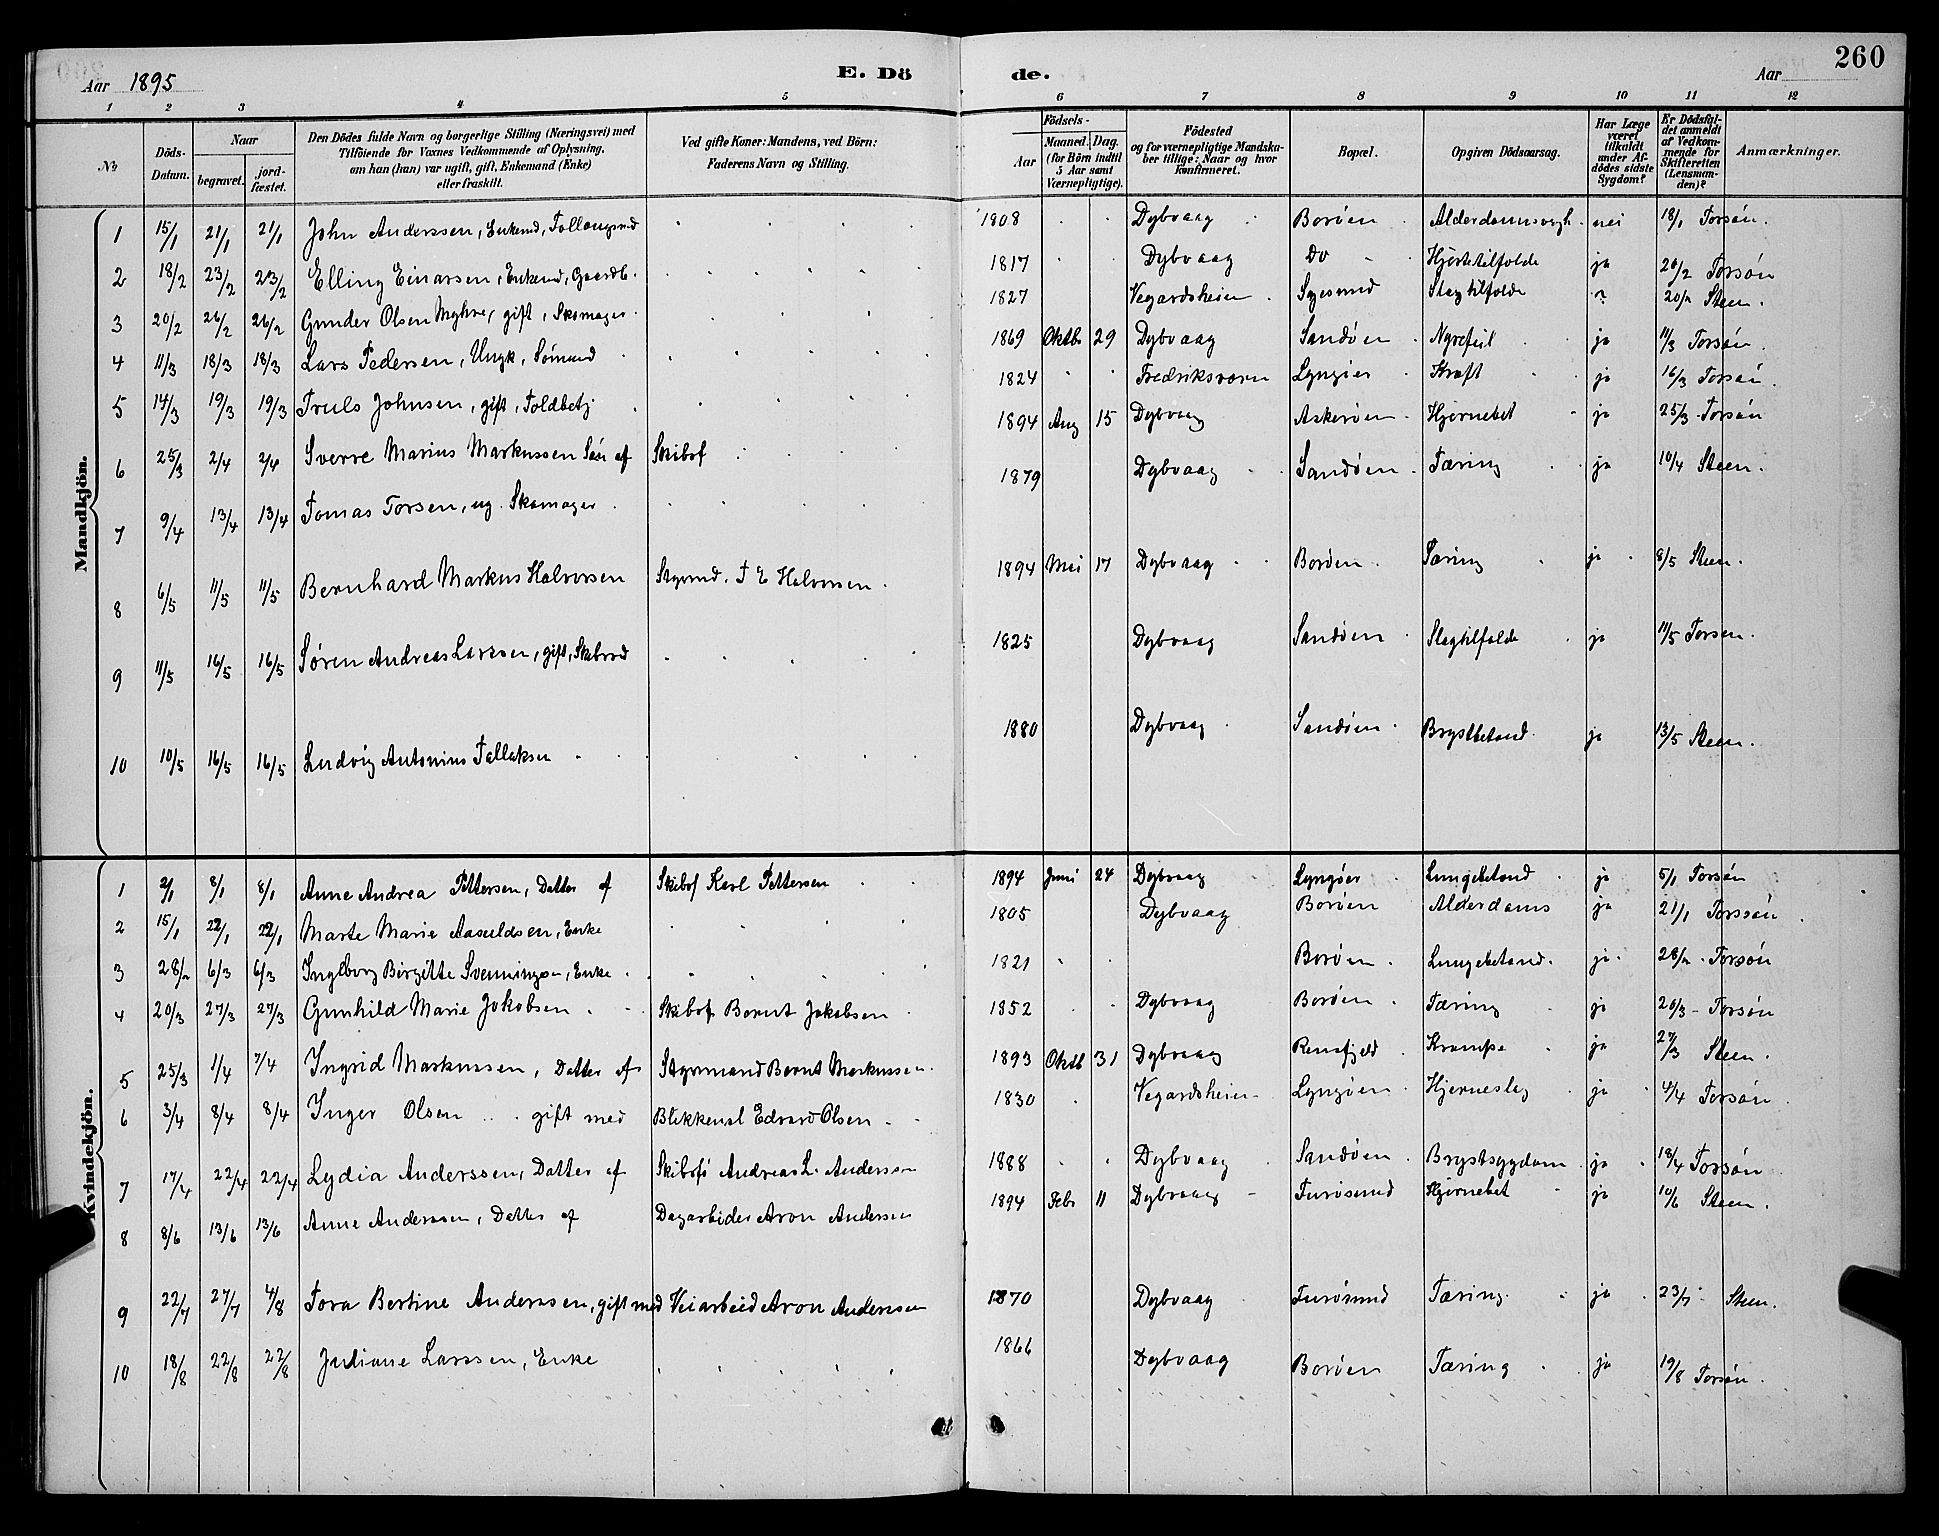 Aar 1895
E. Dö
de.
Aar
260
1 2 3 4 5 6 7 8 9 10 11 12
№
Döds-Datum.
Naar begravet. jordfæstet.
Den Dödes fulde Navn og borgerlige Stilling (Næringsvei) med Tilföiende for Voxnes Vedkommende af Oplysning, om han (hun) var ugift, gift, Enkemand (Enke) eller fraskilt.
Ved gifte Koner: Mandens, ved Börn: Faderens Navn og Stilling.
Födsels- Aar Maaned. Dag. (for Börn indtil 5 Aar samt Værnepligtige).
Födested og for værnepligtige Mandskaber tillige: Naar og hvor konfirmeret.
Bopæl.
Opgiven Dödsaarsag.
Har Læge været tilkaldt under Afdödes sidste Sygdom?
Er Dödsfaldet anmeldt af Vedkommende for Skifteretten (Lensmanden)?
Anmærkninger.
Mandkjön.
1 15/1 21/1 21/1 John Anderssen, Enkemd, 1808 Dybvaag Borøen nei 18/1 Torsøn.
2 18/2 23/2 23/2 Elling Einarsen, Enkemd, Gaardb. 1817 Dybvaag Do Hjertetilfælde ja 20/2 Torsøn
3 20/2 26/2 26/2 Gunder Olsen Myhre, gift, Skomager 1827 Vegardsheien Slagtilfælde 20/2 Steen.
4 11/3 18/3 18/3 Lars Pedersen, Ungk, Sømand 1869 Oktb 29 Dybvaag Sandøen Nyrefeil ja 11/3 Torsøn.
5 14/3 19/3 19/3 Truls Johnsen, gift, Toldbetj 1824 Fredriksværn Lyngøer Kræft ja 16/3 Torsøn.
6 25/3 2/4 2/4 Sverre Marius Markussen Søn af Skibsf 1894 Aug 15 Dybvaag Askerøen Hjernebet ja 25/3 Torsøn
7 9/4 13/4 13/4 Tomas Torsen, ug. Skomager 1879 Dybvaag Sandøen Tæring ja 10/4 Steen.
8 6/5 11/5 11/5 Bernhard Markus Halvorsen Styrmd. T E Halvorsen 1894 Mai 17 Dybvaag Borøen Tæring ja 8/5 Steen.
9 11/5 16/5 16/5 Søren Andreas Larssen, gift, 1825 Dybvaag Sandøen Slagtilfælde ja 11/5 Torsen.
10 10/5 16/5 16/5 Ludvig Antonius Tallaksen 1880 Dybvaag Sandøen Brystbetænd ja 13/5 Steen.
Kvindekjön.
1 2/1 8/1 8/1 Anne Andrea Pettersen, Datter af Skibsf Karl Pettersen 1894 Juni 24 Dybvaag Lyngøer Lungebetænd ja 5/1 Torsøn
2 15/1 22/1 22/1 Marte Marie Aasuldsen, Enke 1805 Dybvaag Borøen Alderdoms ja 21/1 Torssøn
3 28/2 6/3 6/3 Ingeborg Birgitte Svenningsen, Enke 1821 Borøen Lungebetænd. ja 28/2 Torsøn
4 20/3 27/3 27/3 Gunhild Marie Jakobsen Skibsf Bernt Jakobsen 1852 Dybvaag Borøen Tæring ja 20/3 Torsøn
5 25/3 1/4 7/4 Ingrid Markussen, Datter af Styrmand Bernt Markussen 1893 Oktb 31 Dybvaag Krampe ja 27/3 Steen.
6 3/4 8/4 8/4 Inger Olsen gift med Blikkensl Edvard Olsen 1830 Vegardsheien Lyngøen Hjerneslag ja 4/4 Torsøn
7 17/4 22/4 22/4 Lydia Anderssen, Datter af Andreas L. Andersen 1888 Dybvaag Sandøen Brystsygdom ja 18/4 Torsøn
8 8/6 13/6 13/6 Anne Anderssen, Datter af Dagarbeider Aron Andersen 1894 Febr 11 Dybvaag Furøsund Hjernebet ja 10/6 Steen.
9 22/7 27/7 4/8 Tora Bertine Anderssen, gift med Veiarbeid Aron Andersen 1870 Dybvaag Furøsund Tæring ja 23/7 Steen.
10 18/8 22/8 22/8 Juliane Larssen, Enke 1866 Dybvaag Borøen Tæring ja 19/8 Torsøn.